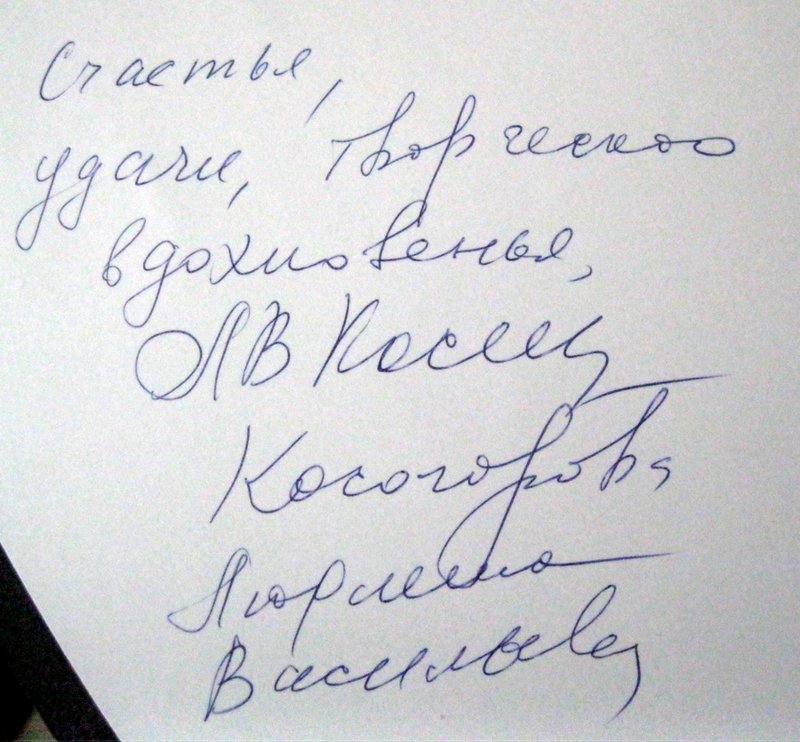 Счастья,
удачи, творческого
вдохновенья,
ЛВ Косог
Косогорова
Людмила
Васильева